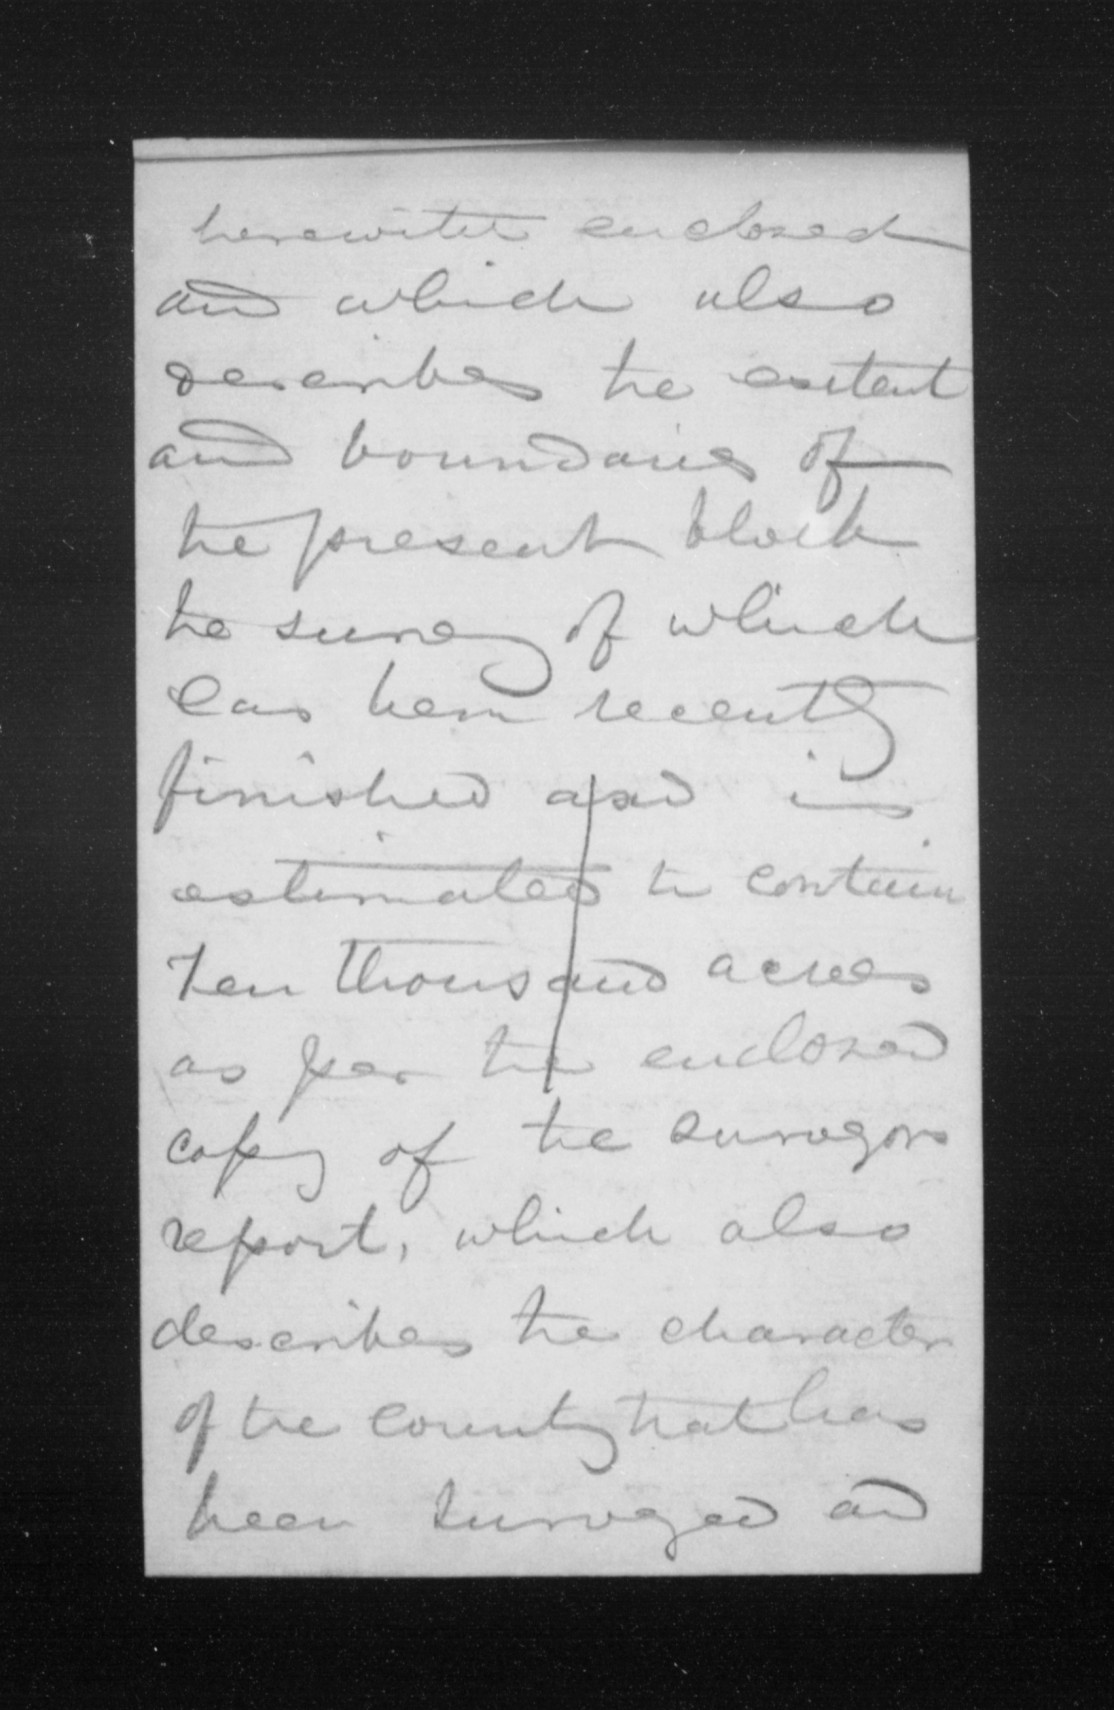 herewith enclosed
and which also
describes the extent
and boundaries of
the present block
the survey of which
has been recently
finished and is
estimated to contain
Ten thousand acres
as per the enclosed
copy of the surveyors
report, which also
describes the character
of the country that has
been surveyed and